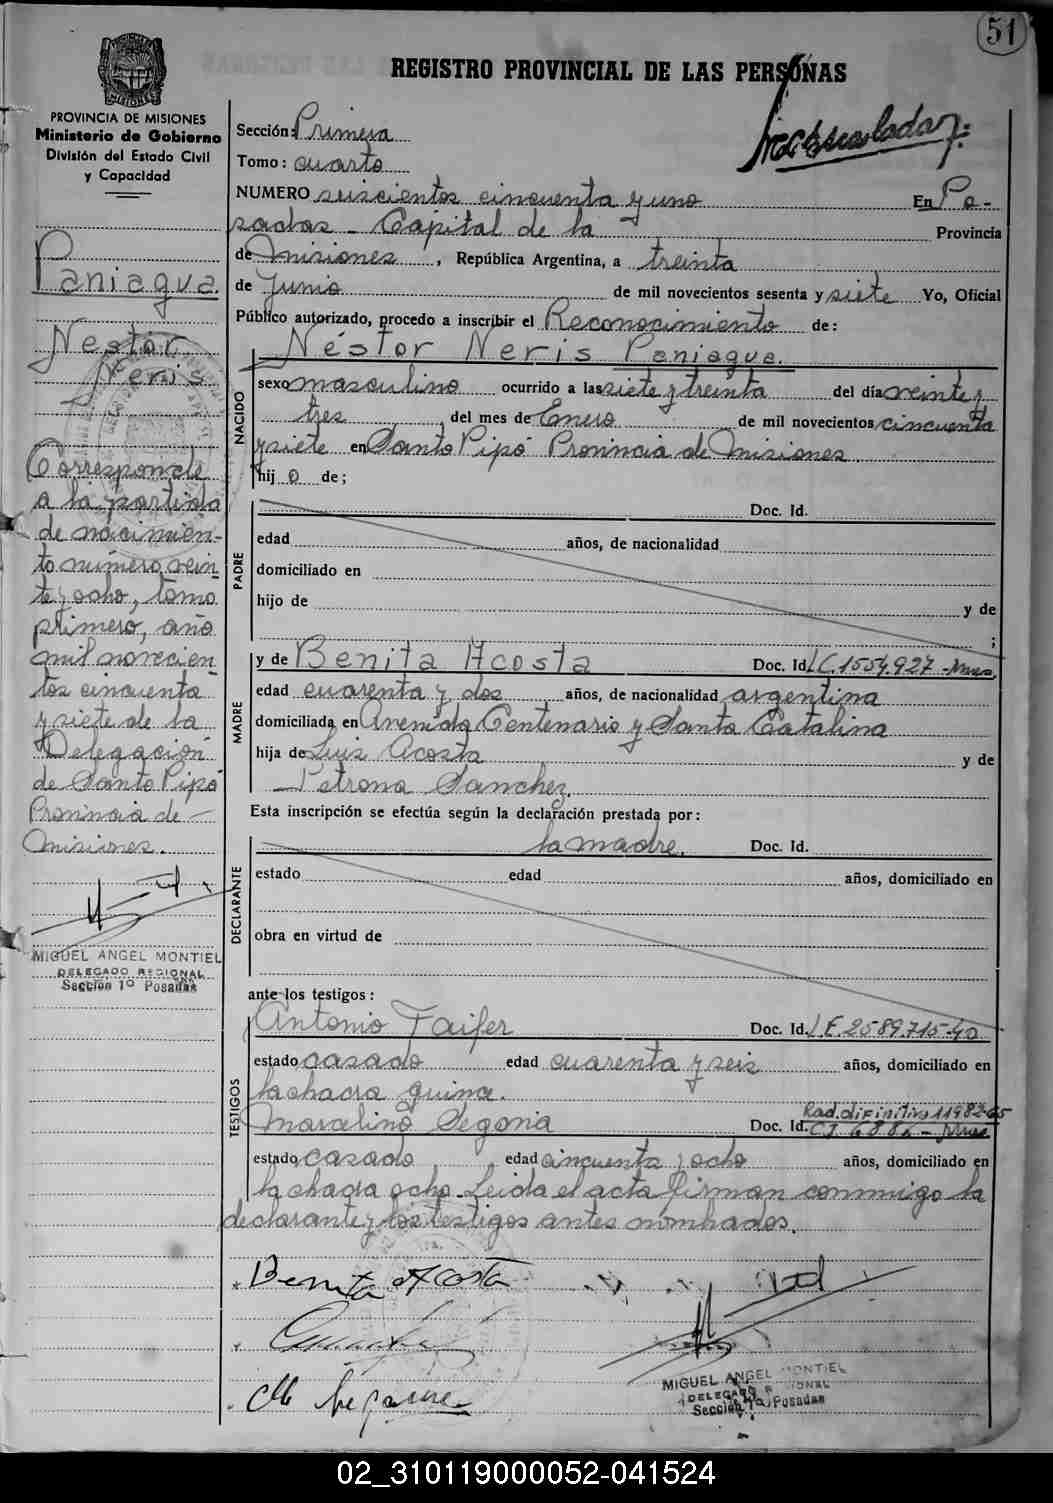 51
REGISTRO PROVINCIAL DE LAS PERSONAS
PROVINCIA DE MISIONES
Ministerio de Gobierno
División del Estado Civil
y Capacidad
Sección: Primera
Tomo: cuarto
NUMERO seiscientos cincuenta y uno En Po-
sadas - Capital de la Provincia
de Misiones, República Argentina, a treinta
de Junio de mil novecientos sesenta y siete Yo, Oficial
Público autorizado, procedo a inscribir el Reconocimiento de:
Néstor Neris Paniagua.
NACIDO
sexo masculino ocurrido a las siete y treinta del día veinte y
tres del mes de Enero de mil novecientos cincuenta
y siete en Santo Pipó Provincia de Misiones
hijo de;
PADRE
Doc. Id.
edad años, de nacionalidad
domiciliado en
hijo de y de
;
MADRE
y de Benita Acosta Doc. Id. L.C.1554.927 -
edad cuarenta y dos años, de nacionalidad argentina
domiciliada en Avenida Centenario y Santa Catalina
hija de Luis Acosta y de
Petrona Sanchez.
Esta inscripción se efectúa según la declaración prestada por:
DECLARANTE
la madre. Doc. Id.
estado edad años, domiciliado en
obra en virtud de
ante los testigos:
TESTIGOS
Antonio Taifer Doc. Id. L.E. 2589.715-40
estado casado edad cuarenta y seis años, domiciliado en
la chacra quince.
Rad. difinitiva 11982-65
Marcelino Segovia Doc. Id. C.I.
estado casado edad cincuenta y ocho años, domiciliado en
la chacra ocho. Leida el acta firman conmigo la
declarante y los testigos antes nombrados.
Benita Acosta
MIGUEL ANGEL MONTIEL
DELEGADO REGIONAL
Sección 1º Posadas
Paniagua
Nestor
Neris
Corresponde
a la partida
de nacimien-
to número vein
te y ocho, tomo
primero, año
mil novecien
tos cincuenta
y siete de la
Delegación
de Santo Pipó
Provincia de
Misiones.
MIGUEL ANGEL MONTIEL
DELEGADO REGIONAL
Sección 1º Posadas
02_310119000052-041524